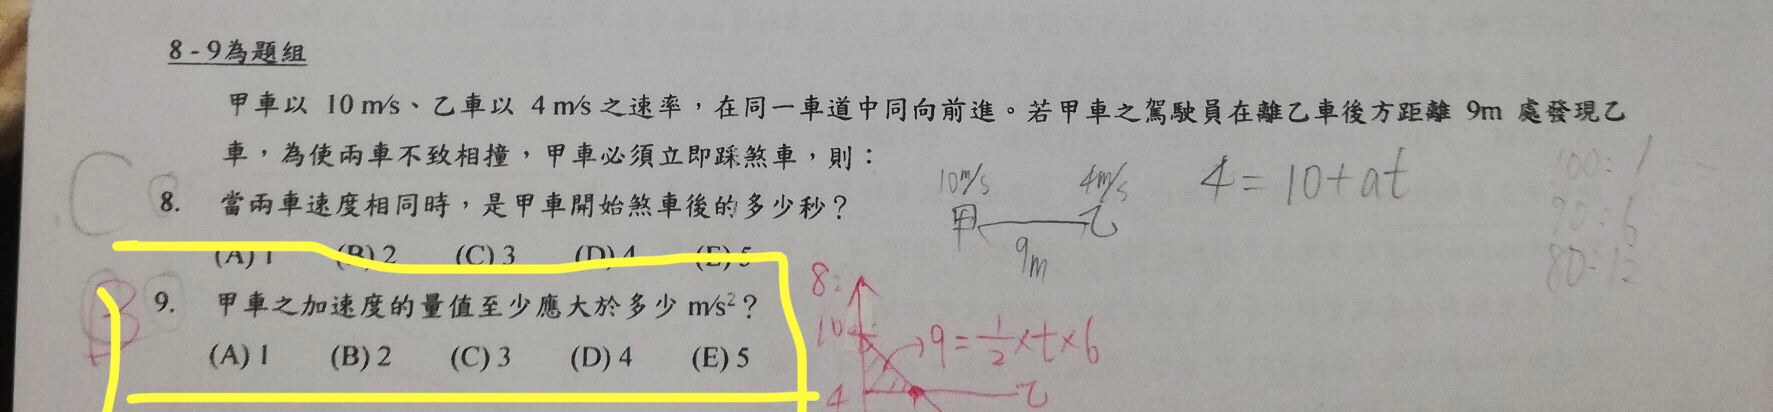 8-9為題組
甲車以 10 m/s、乙車以 4 m/s 之速率，在同一車道中同向前進。若甲車之駕駛員在離乙車後方距離 9m 處發現乙
車，為使兩車不致相撞，甲車必須立即踩煞車，則：
C 8. 當兩車速度相同時，是甲車開始煞車後的多少秒？
(A) 1 (B) 2 (C) 3 (D) 4 (E) 5
B 9. 甲車之加速度的量值至少應大於多少 m/s²？
(A) 1 (B) 2 (C) 3 (D) 4 (E) 5
10m/s 4m/s
甲 乙
9m
4 = 10 + at
100:1
90:6
8:
10
9 = 1/2 × t × 6
4 乙